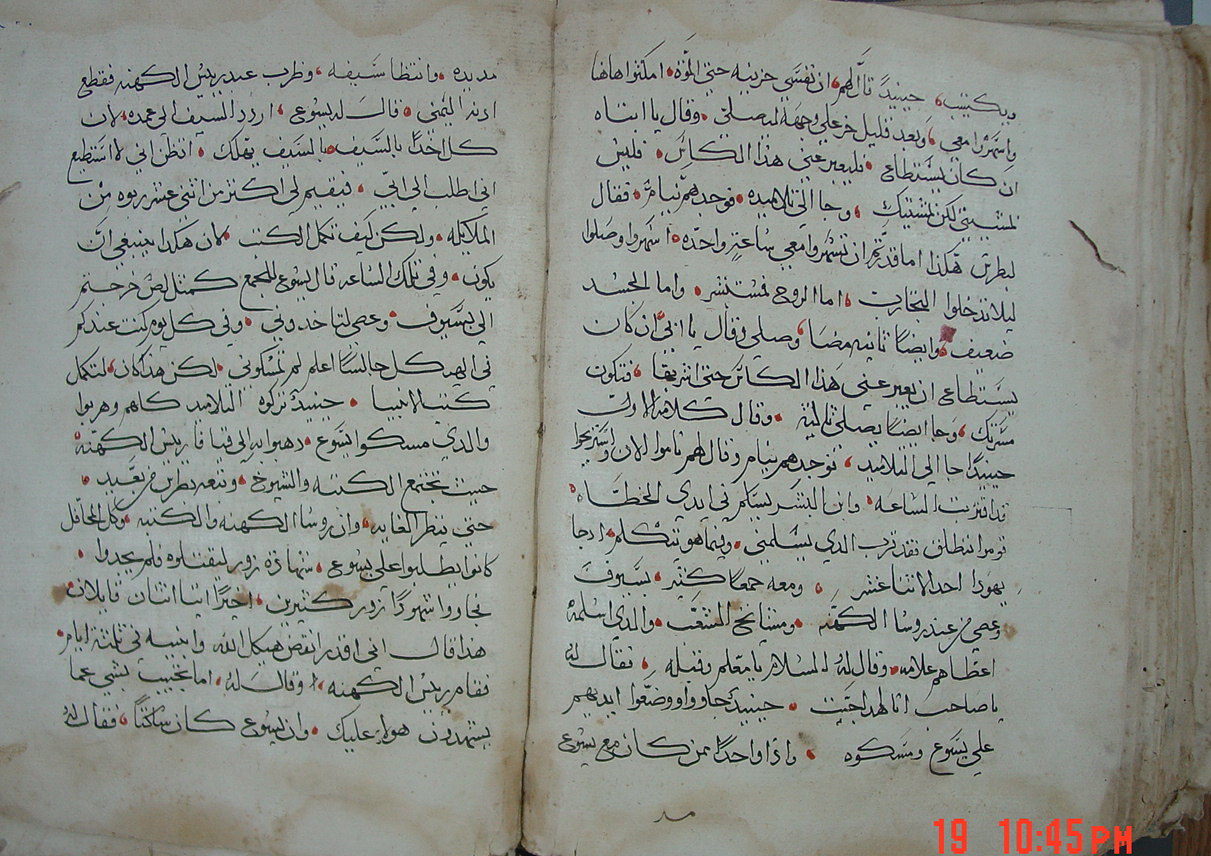 ويكتيب، حينيدٍ قال لهم، ان نفسي حزينه حتى الموة، امكتوا هاهنا
واسهروا معي، وبعد قليل خر على وجهه ليصلي، وقال يا ابتاه
ان كان يستطاع، فليعبر عني هذا الكاس، فليس
لمشيتي لكن لمشيتك، وجا الى تلاميده، فوجدهم نيام، فقال
لبطرس هكذا اما قدرتم ان تسهروا معي ساعة واحده، اسهروا وصلوا
ليلا تدخلوا التجارب، اما الروح فمستبشر، واما الجسد
ضعيف، وايضًا تانيه مضا، وصلى وقال يا ابي ان كان
يستطاع ان يعبر عني هذا الكاس حتى اشربها، فتكون
مسرتك، وجا ايضًا يصلي تالتة، وقال كلامه الاول
حينيدًا جا الى التلاميد، فوجدهم نيام وقال لهم ناموا الان واستريحوا
قد اقتربت الساعه، وابن البشر يسلم في ايدي الخطاه
قوموا ننطلق فقد قرب الدي يسلمني، وبينما هو يتكلم، اد جا
يهودا احد الاتنا عشر، ومعه جمعًا كتير، بسيوف
وعصي من عند روسا الكهنه، ومشايخ الشعب، والدي اسلمه
اعطاهم علامه، وقال له السلام يا معلم وقبله، فقال له
يا صاحب اتا لهدا جيت، حينيد جاووا ووضعوا ايديهم
على يسوع ومسكوه، وادا واحدًا ممن كان مع يسوع
مد يده، وانتظا سيفه، وظرب عبد رييس الكهنه فقطع
ادنه اليمنى، قال له يسوع، اردد السيف الى غمده، لان
كل اخدًا بالسيف، بالسيف يهلك، اتظن اني لا استطيع
اني اطلب الى ابي، فيقيم لي اكتر من اتني عشر ربوه من
الملايكه، ولكن كيف تكمل الكتب، لان هكدا ينبغي ان
يكون، وفي تلك الساعه قال يسوع للجمع كمتل لص خرجتم
الي بسيوف، وعصي لتاخدوني، وفي كل يوم كنت عندكم
في الهيكل جالسًا اعلم لم تمسكوني، لكن هدا كان، لتكمل
كتب الانبيا، حينيد تركوه التلاميد كلهم وهربوا
والدي مسكوا يسوع، دهبوا به الى قيافا رييس الكهنه
حيت تجتمع الكتبه والشيوخ، وتبعه بطرس من بعيد،
حتى ينظر الغايه، وان روسا الكهنه والكتبه، وكل المحافل
كانوا يطلبوا على يسوع، شهادة زور ليقتلوه فلم يجدوا،
فجاووا شهودًا زور كتيرين، اخيرًا اتيا اتنان قايلان
هدا قال اني اقدر انقض هيكل الله وابنيه في تلتة ايام،
فقام رييس الكهنه، وقال له، اما تجيب بشي عما
يشهدون هولا عليك، وان يسوع كان ساكتًا، فقال له
19 10:45 PM